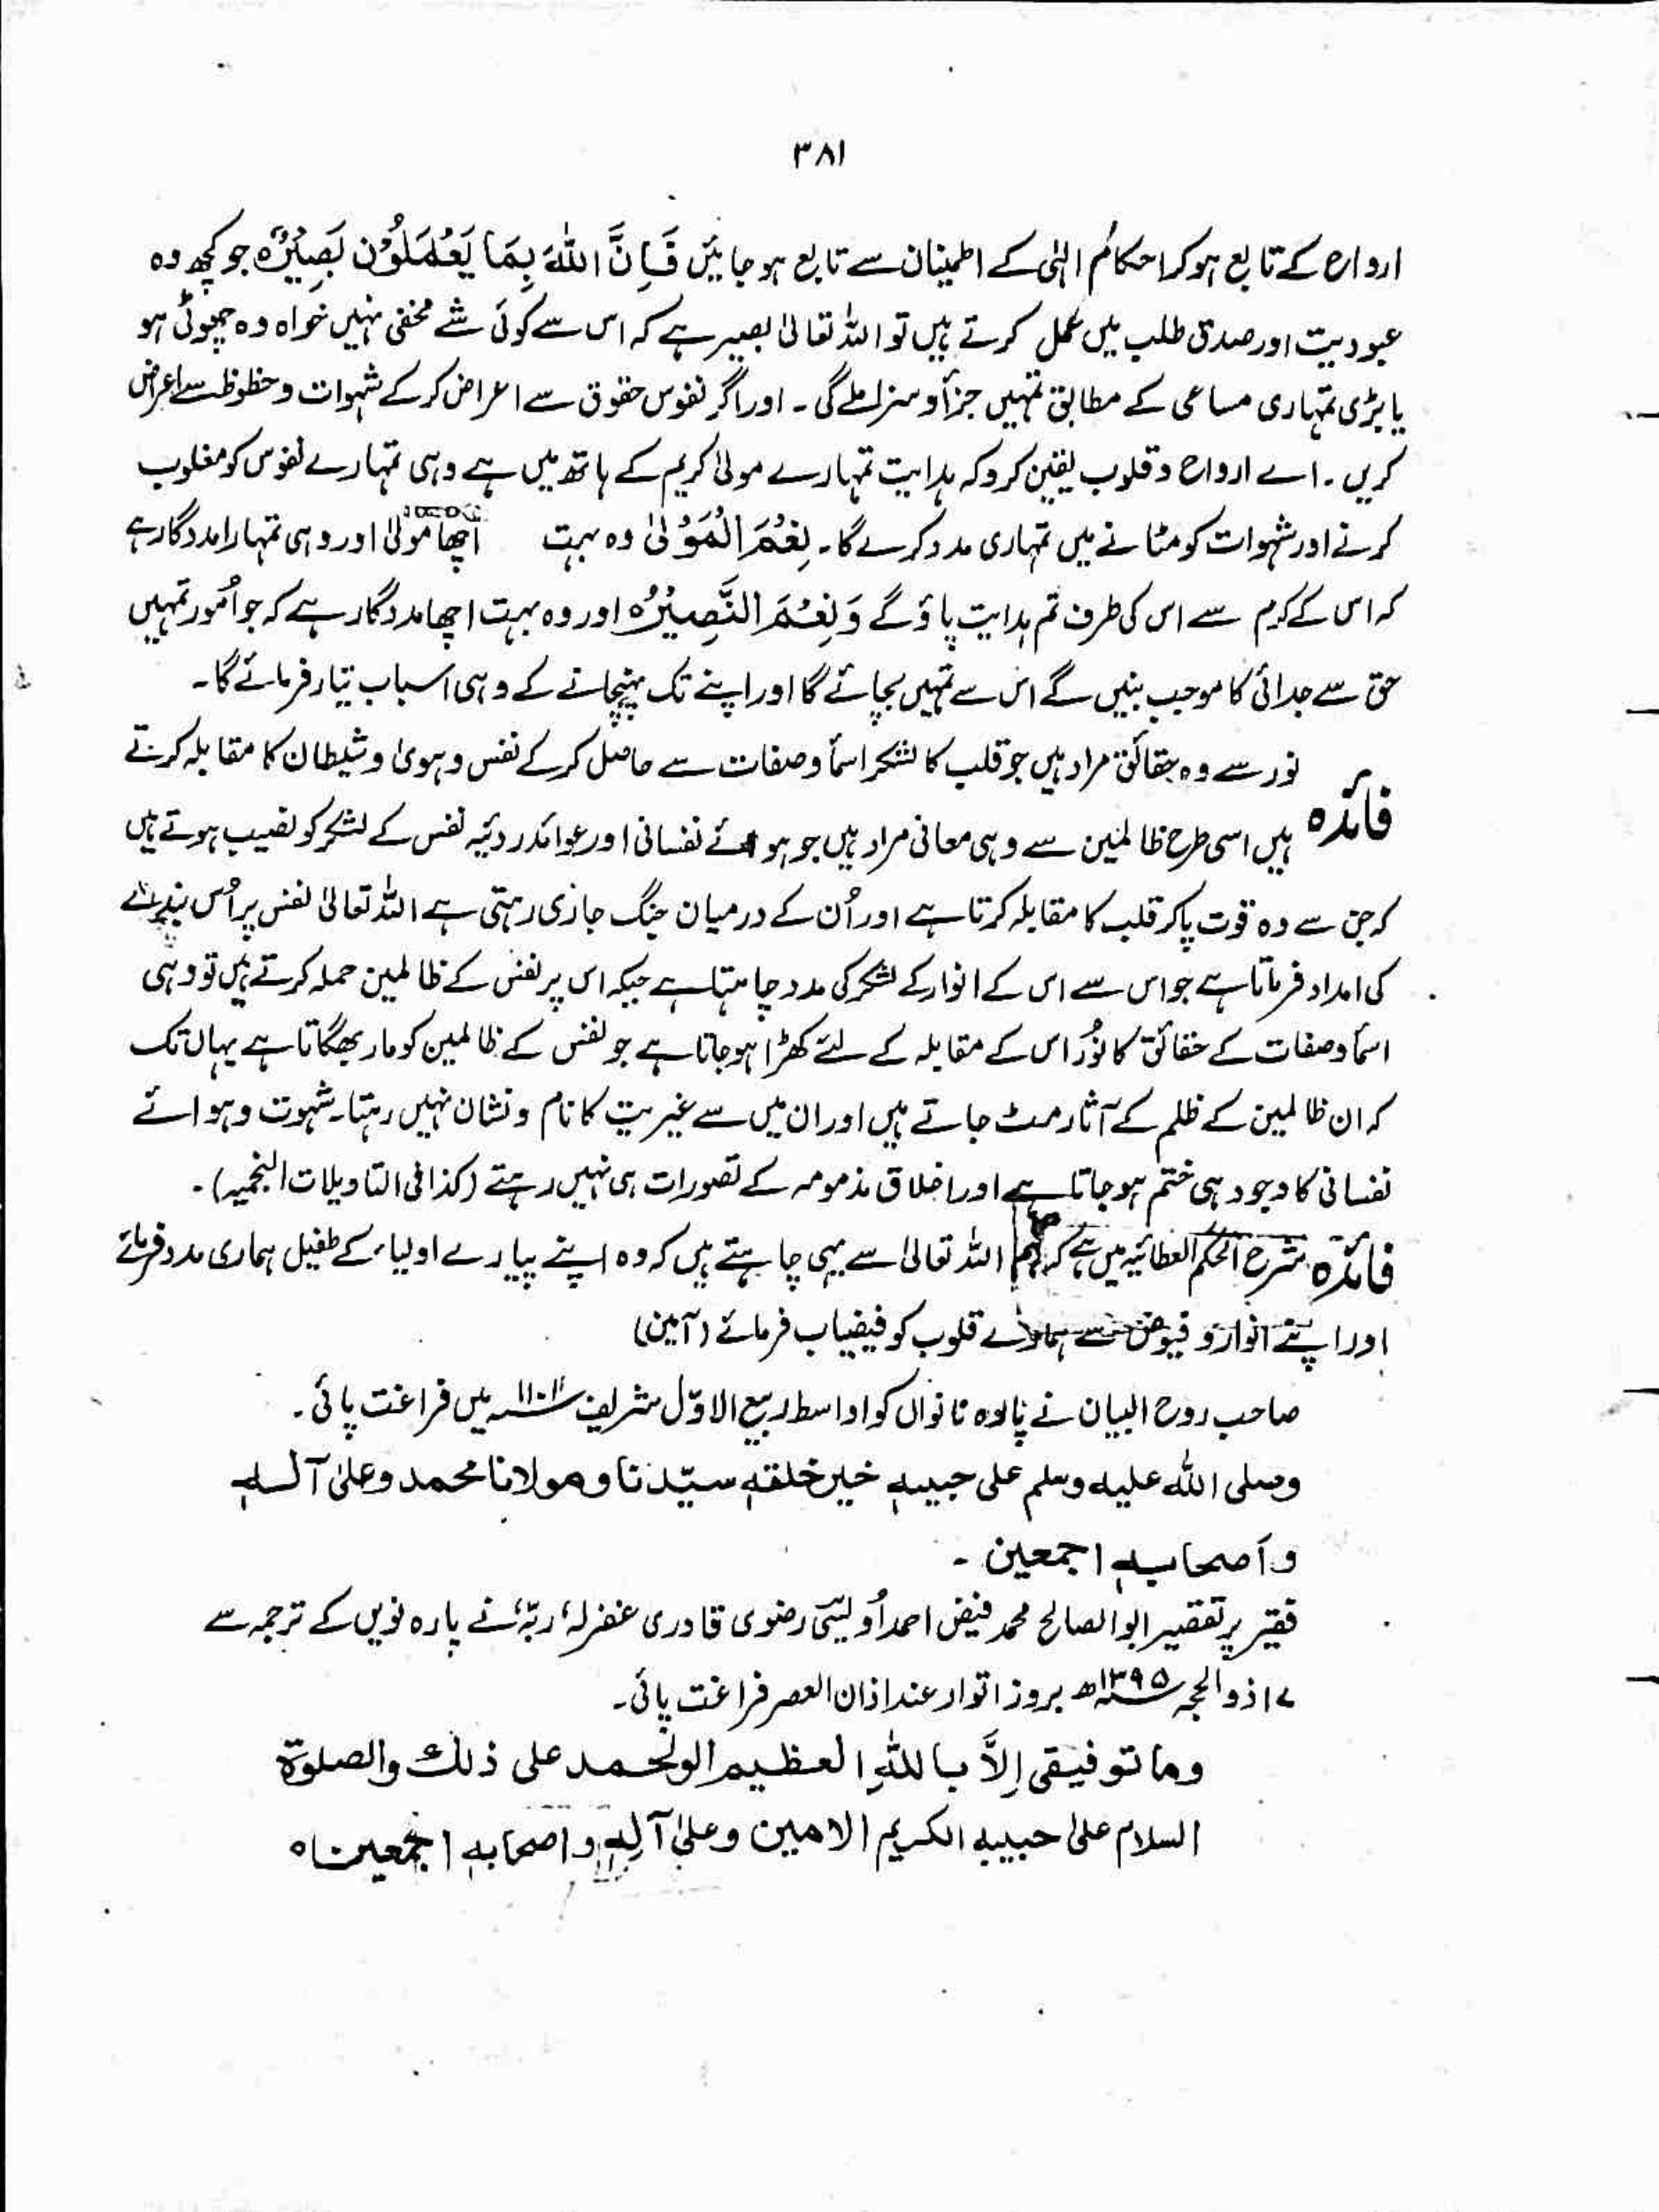 ۳۸۱
ارواح کے تابع ہو کر احکام الہٰی کے اطمینان سے تابع ہو جائیں فَاِنَّ اللّٰہَ بِمَا یَعْمَلُوْنَ بَصِیْرٌہ جو کچھ وہ
عبودیت اور صدق طلب میں عمل کرتے ہیں تو اللہ تعالیٰ بصیر ہے کہ اس سے کوئی شے مخفی نہیں خواہ وہ چھوٹی ہو
یا بڑی تمہاری مساعی کے مطابق تمہیں جزأ و سزا ملے گی ۔ اور اگر نفوس حقوق سے اعراض کر کے شہوات و حظوظ سے اعراض
کریں ۔ اے ارواح و قلوب یقین کرو کہ ہدایت تمہارے مولیٰ کریم کے ہاتھ میں ہے وہی تمہارے نفوس کو مغلوب
کرنے اور شہوات کو مٹانے میں تمہاری مدد کرے گا ۔ نِعْمَ الْمَوْلٰی وہ بہت اچھا مولیٰ اور وہی تمہارا مددگار ہے
کہ اس کے کرم سے اس کی طرف تم ہدایت پاؤ گے وَ نِعْمَ النَّصِیْرُہ اور وہ بہت اچھا مددگار ہے کہ جو اُمور تمہیں
حق سے جدائی کا موجب بنیں گے اس سے تمہیں بچائے گا اور اپنے تک پہنچانے کے وہی اسباب تیار فرمائے گا ۔
فائدہ نور سے وہ حقائق مراد ہیں جو قلب کا لشکر اسمأ و صفات سے حاصل کر کے نفس و ہویٰ و شیطان کا مقابلہ کرتے
ہیں اسی طرح ظالمین سے وہی معانی مراد ہیں جو ہوائے نفسانی اور عوائد ردیّہ نفس کے لشکر کو نصیب ہوتے ہیں
کہ جن سے وہ قوت پا کر قلب کا مقابلہ کرتا ہے اور اُن کے درمیان جنگ جاری رہتی ہے اللہ تعالیٰ نفس پر اُس بندے
کی امداد فرماتا ہے جو اس سے اس کے انوار کے لشکر کی مدد چاہتا ہے جبکہ اس پر نفس کے ظالمین حملہ کرتے ہیں تو وہی
اسمأ و صفات کے حقائق کا نُور اس کے مقابلہ کے لئے کھڑا ہو جاتا ہے جو نفس کے ظالمین کو مار بھگاتا ہے یہاں تک
کہ ان ظالمین کے ظلم کے آثار مٹ جاتے ہیں اور ان میں سے غیریت کا نام و نشان نہیں رہتا ۔ شہوت و ہوائے
نفسانی کا وجود ہی ختم ہو جاتا ہے اور اخلاق مذمومہ کے تصورات ہی نہیں رہتے (کذا فی التاویلات النجمیہ) ۔
فائدہ شرح الحکم العطائیہ میں ہے کہ ہم اللہ تعالیٰ سے یہی چاہتے ہیں کہ وہ اپنے پیارے اولیاء کے طفیل ہماری مدد فرمائے
اور اپنے انوار و فیوض سے ہمارے قلوب کو فیضیاب فرمائے (آمین)
صاحب روح البیان نے پارہ نانواں کو اواسط ربیع الاوّل شریف ۱۱۰۲ میں فراغت پائی ۔
وصلی اللہ علیہ وسلم علی حبیبہٖ خیر خلقہٖ سیّدنا و مولانا محمد وعلیٰ آلہٖ
و اصحابہٖ اجمعین ۔
فقیر پر تقصیر ابو الصالح محمد فیض احمد اُویسی رضوی قادری غفرلہٗ ربّہٗ نے پارہ نویں کے ترجمہ سے
۱۷ ذوالحجہ ۱۳۹۵ھ بروز اتوار عند اذان العصر فراغت پائی ۔
وما توفیقی اِلاَّ باللّٰہِ العظیم الولحمد علی ذلك والصلوٰة
السلام علیٰ حبیبہ الکریم الامین وعلیٰ آلہٖ واصحابہٖ اجمعین ہ